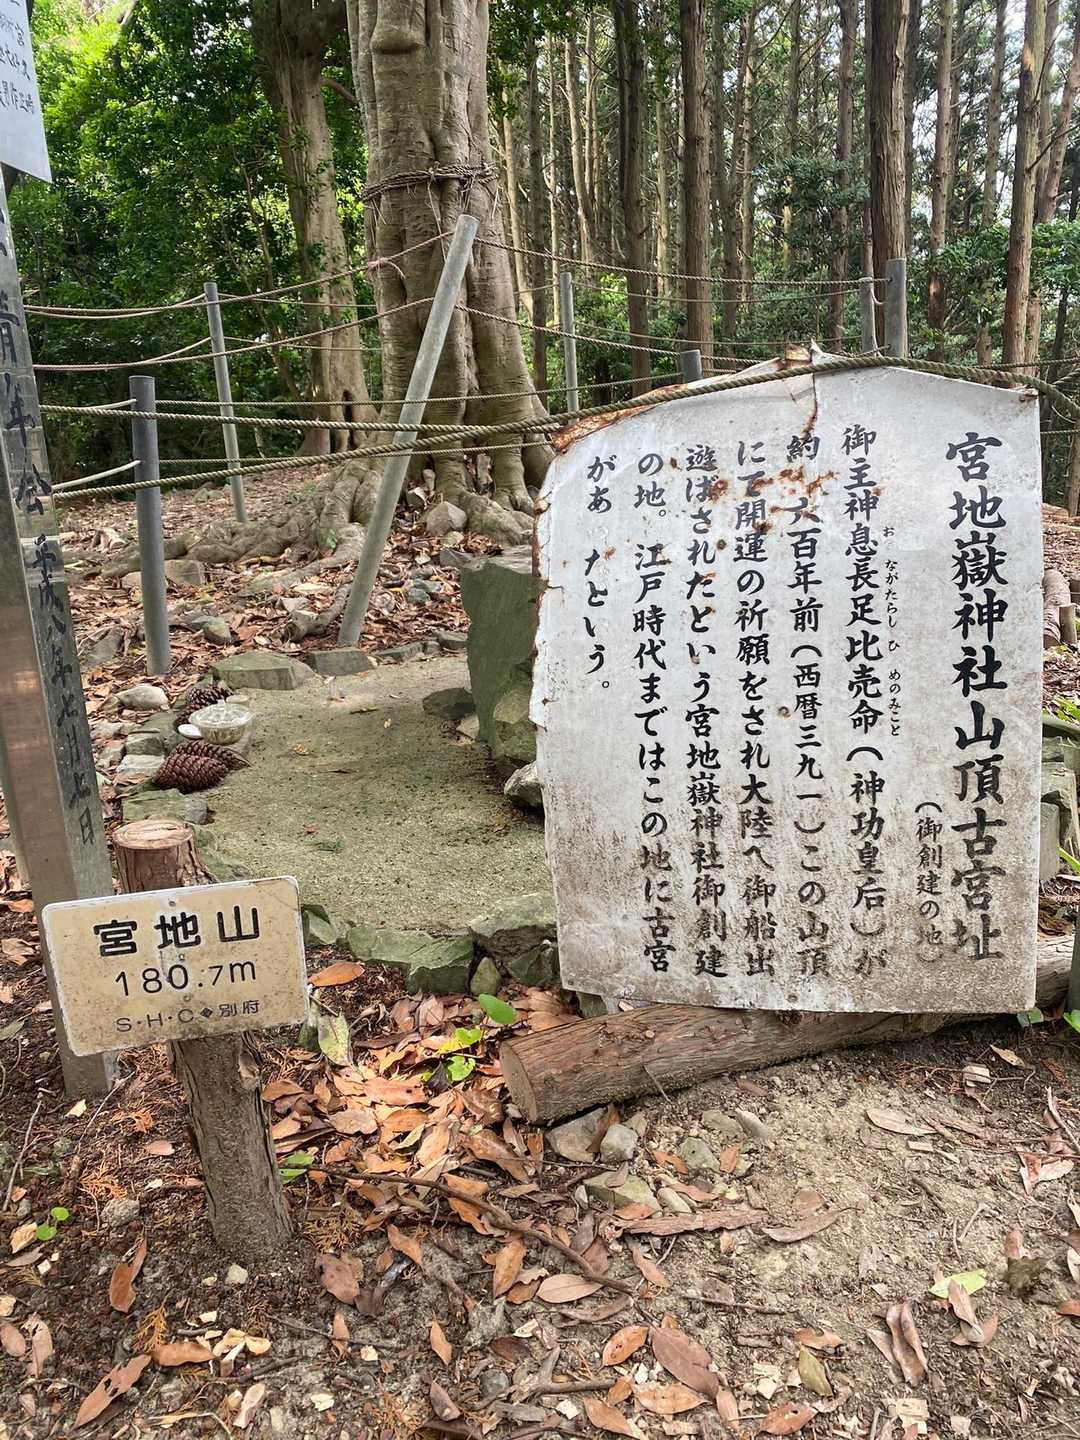 宮地嶽神社山頂古宮址
（御創建の地）
御主神息長足比売命（神功皇后）が
お ながたらし ひ めのみこと
約 六百年前（西暦三九一）この山頂
にて開運の祈願をされ大陸へ御船出
遊ばされたという宮地嶽神社御創建
の地。江戸時代まではこの地に古宮
があ たという。
宮地山
180.7m
S・H・C◆別府
青年会
平成八年七月七日